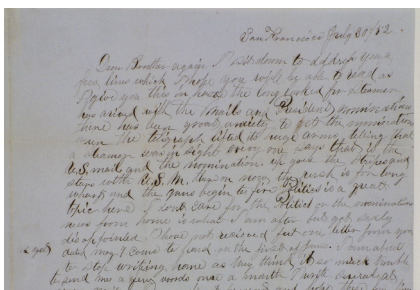 San Francisco July 30/52.
Dear Brother again I sit down to address you a
few lines which I hope you will be able to read as
I give you this in haste the long looked for steamer
has arived with the mails and President nomination
There has been great anxiety to get the nomination
when the telegraph listed its huge arms, telling that
a steamer was in sight every one says that is the
U.S. mail and the nomination up goes the
stops with U.S.M. upon now the rush is for long
wharf and the guns begin to fire Politics is a great
topic here I dont care for the Politics or the nomination
news from home is what I am after but got sadly
disapointed I have not recieved but one letter from you
dated may I come to hand on the first of June. I am about
to stop writing home as they think it so much trouble
to send me a few words once a month I wrote several